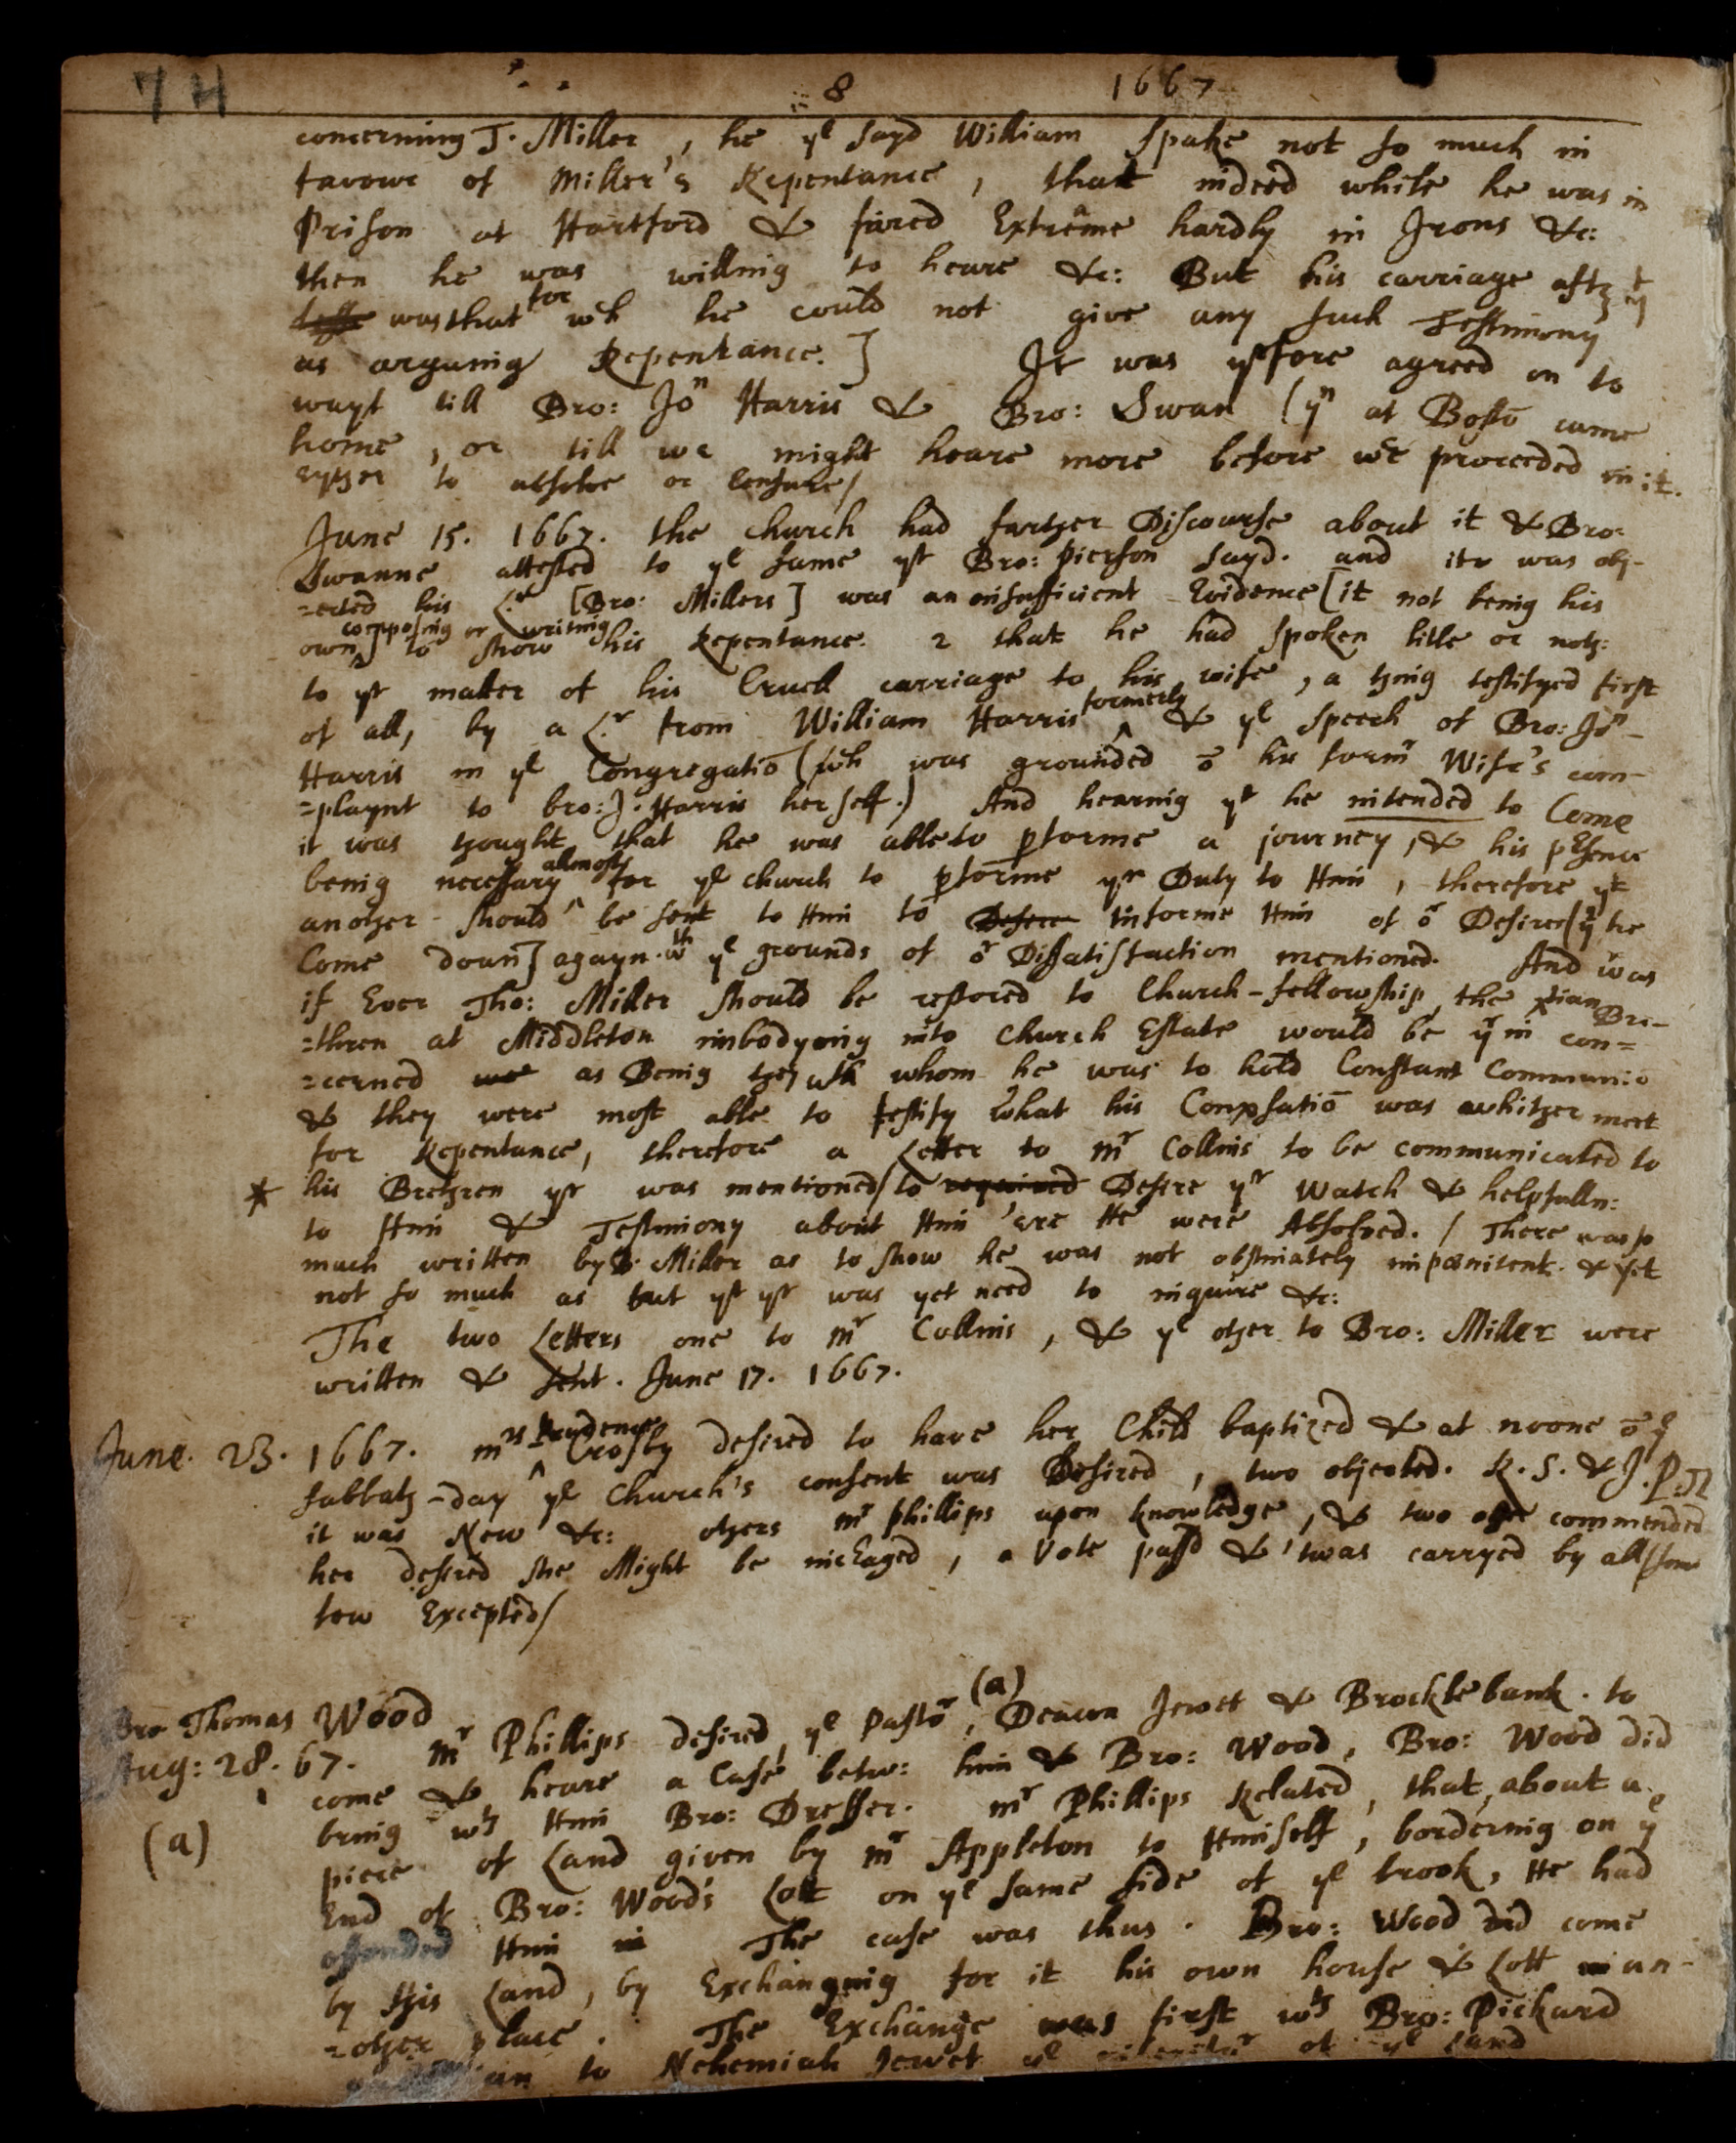 74 8 1667
concerning J. Miller, he ye sayd William spake not so much in
favour of Miller's Repentance, that indeed while he was in
Prison at Hartford & fared Extreme hardly in Irons &c:
then he was willing to heare &c: But his carriage after yt
was that for wh he could not give any such Testimony
as arguing Repentance.] It was yrfore agreed on to
wayt till Bro: Jon Harris & Bro: Swan (yn at Bostō came
home, or till we might heare more before we proceeded in it.
eyther to absolve or Censure/
June 15. 1667. the church had farther Discourse about it & Bro:
Swanne attested to ye same yt Bro: Pierson sayd. and itt was obj-
=ected his Lr [Bro: Millers] was an insufficient Evidence [it not being his
own composing or writing] to show his Repentance. 2 that he had spoken litle or noth:
to yt matter of his Cruell carriage to his wife, a thing testifyed first
of all, by a Lr from William Harris formerly & ye speech of Bro: Jon-
Harris in ye Congregatiō (wh was grounded ō his formr Wife's com-
=playnt to bro: J. Harris herself.) And hearing yt he intended to Come
it was thought that he was able to pforme a journey, & his pesence
being necessary allmost for ye church to pforme yir Duty to Him, therefore yt
another should be sent to Him to Desire informe Him of or Desires [yt he
Come down] agayn. wth ye grounds of or Dissatisfaction mentioned. And was
if Ever Tho: Miller should be restored to Church-fellowship, the xtian Bre-
=thren at Middleton imbodying into Church Estate would be yrin con=
=cerned as Being they wth whom he was to hold Constant Communiō
& they were most able to testify what his Conversatiō was whither meet
for Repentance, therefore a Letter to mr Collins to be communicated to
* his Brethren yr was mentioned/ to required Desire yir Watch & helpfulln:
to Him & Testimony about Him 'ere He were Absolved. / There was so
much written by B. Miller as to show he was not obstinately impœnitent. & yet
not so much as but yt yr was yet need to inquire &c:
The two Letters one to mr Collins, & ye other to Bro: Miller were
written & sent. June 17. 1667.
June. 23. 1667. mrs Prudence Crosby desired to have her Child baptized & at noone ō ye
sabbath-day ye Church's consent was Desired, two objected. R. S. & J. P.
it was New &c: others mr Phillips upon knowledge, & two commended
her desired she Might be incɣaged, a Vote passd & 'twas carryed by all/some
few Excepted/
Bro Thomas Wood
Aug: 28. 67. mr Phillips desired ye Pastor, (a) Deacon Jewet & Brocklebank. to
come & heare a Case betw: him & Bro: Wood, Bro: Wood did
bring wth Him Bro: Dresser. mr Phillips Related, that, about a
(a) piece of Land given by mr Appleton to Himself, bordering on ye
End of Bro: Wood's Lott on ye same side of ye brook, He had
offended Him in The case was thus. Bro: Wood did come
by this Land, by Exchanging for it his own house & Lott in an-
=other place. The Exchange was first wth Bro: Pickard
to Nehemiah Jewet ye of ye Land